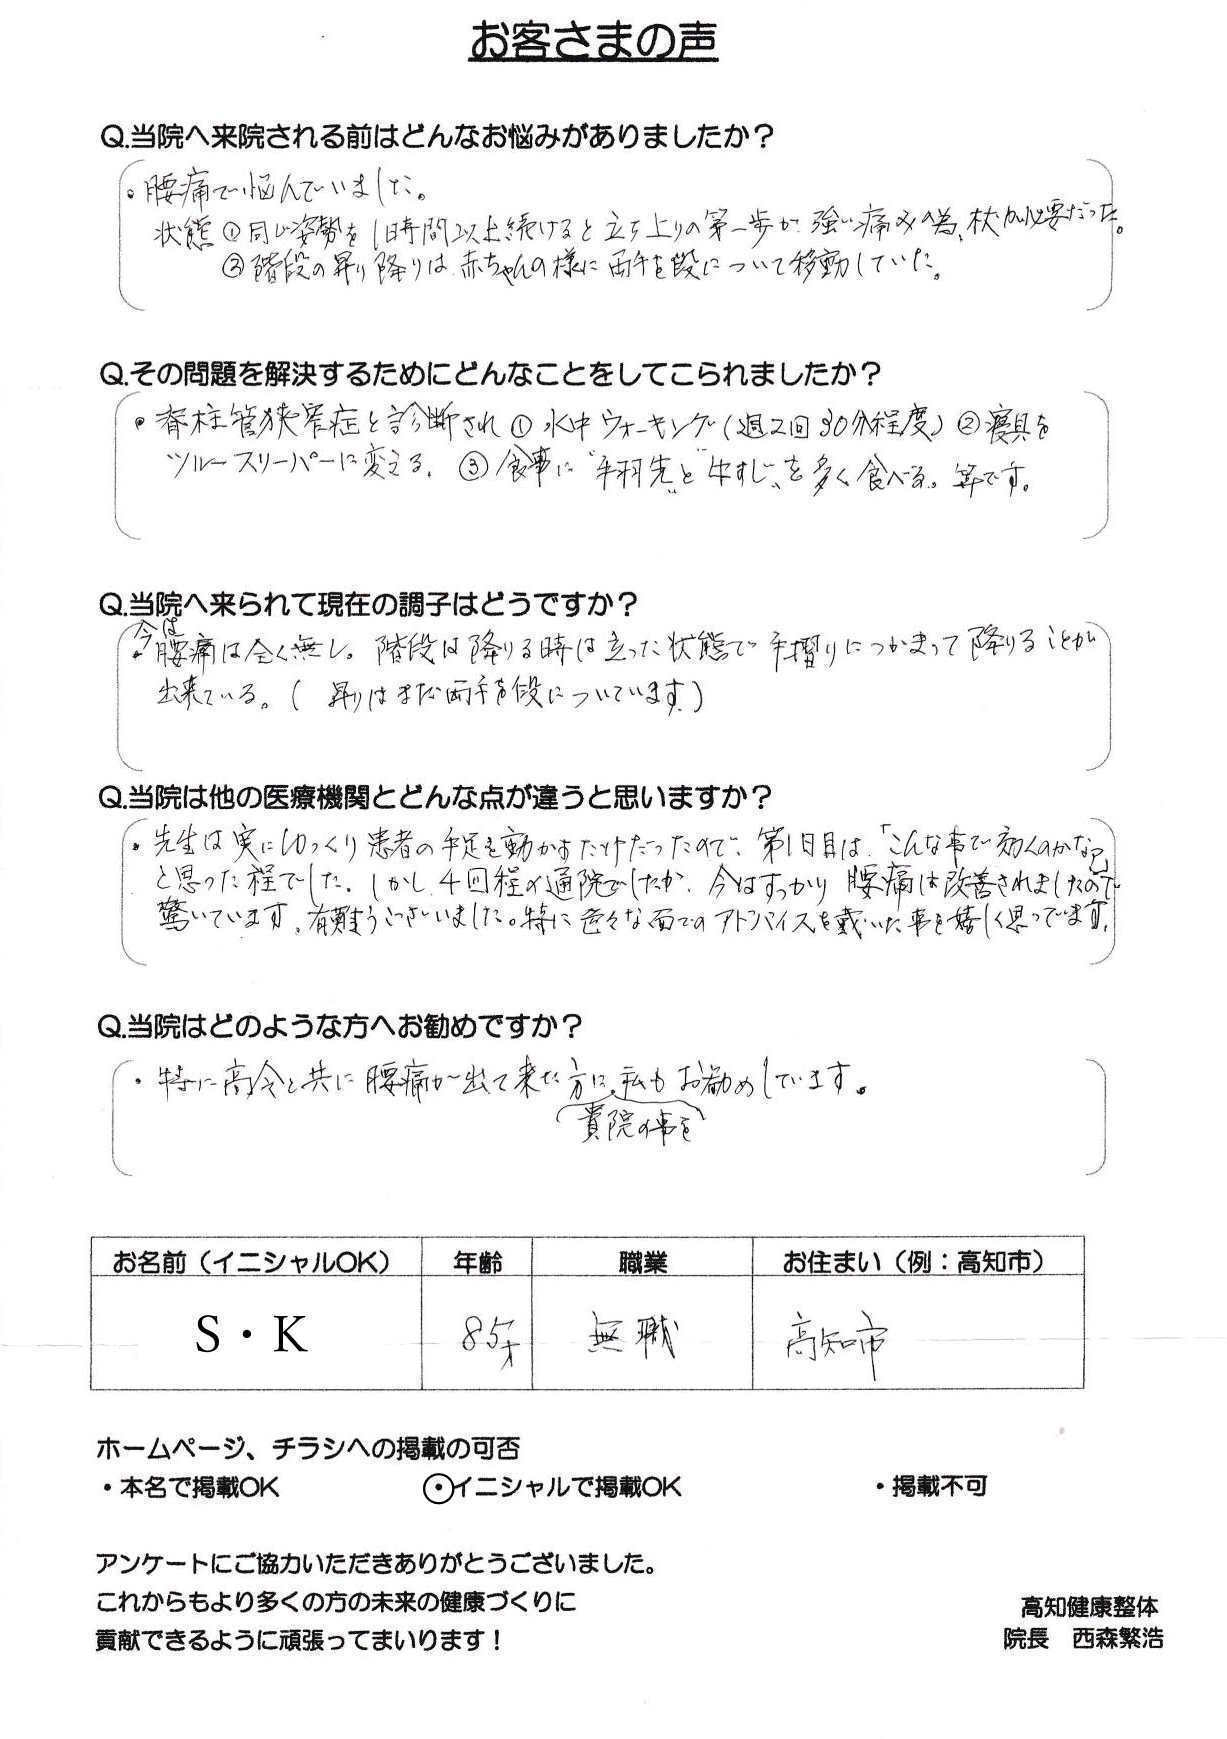 お客さまの声
Q.当院へ来院される前はどんなお悩みがありましたか？
・腰痛で悩んでいました。
状態①同じ姿勢を1時間以上続けると立ち上りの第一歩が強い痛みの為、杖が必要だった。
②階段の昇り降りは赤ちゃんの様に両手を段について移動していた。
Q.その問題を解決するためにどんなことをしてこられましたか？
・脊柱管狭窄症と診断され①水中ウォーキング(週2回30分程度)②寝具を
ツルースリーパーに変える。③食事に"手羽先"と"牛すじ"を多く食べる。等です。
Q.当院へ来られて現在の調子はどうですか？
・今は腰痛は全く無し。階段は降りる時は立った状態で手摺りにつかまって降りることが
出来ている。(昇りはまだ両手を段についています)
Q.当院は他の医療機関とどんな点が違うと思いますか？
・先生は実にゆっくり患者の手足を動かすだけだったので、第1日目は「こんな事で効くのかな?」
と思った程でした。しかし、4回程の通院でしたが、今はすっかり腰痛は改善されましたので
驚いています。有難うございました。特に色々な面でのアドバイスを戴いた事を嬉しく思っています。
Q.当院はどのような方へお勧めですか？
・特に高令と共に腰痛が出て来た方に私もお勧めしています。
貴院の事を
お名前（イニシャルOK） 年齢 職業 お住まい（例：高知市）
S・K 85才 無職 高知市
ホームページ、チラシへの掲載の可否
・本名で掲載OK ⊙イニシャルで掲載OK ・掲載不可
アンケートにご協力いただきありがとうございました。
これからもより多くの方の未来の健康づくりに
貢献できるように頑張ってまいります！
高知健康整体
院長 西森繁浩